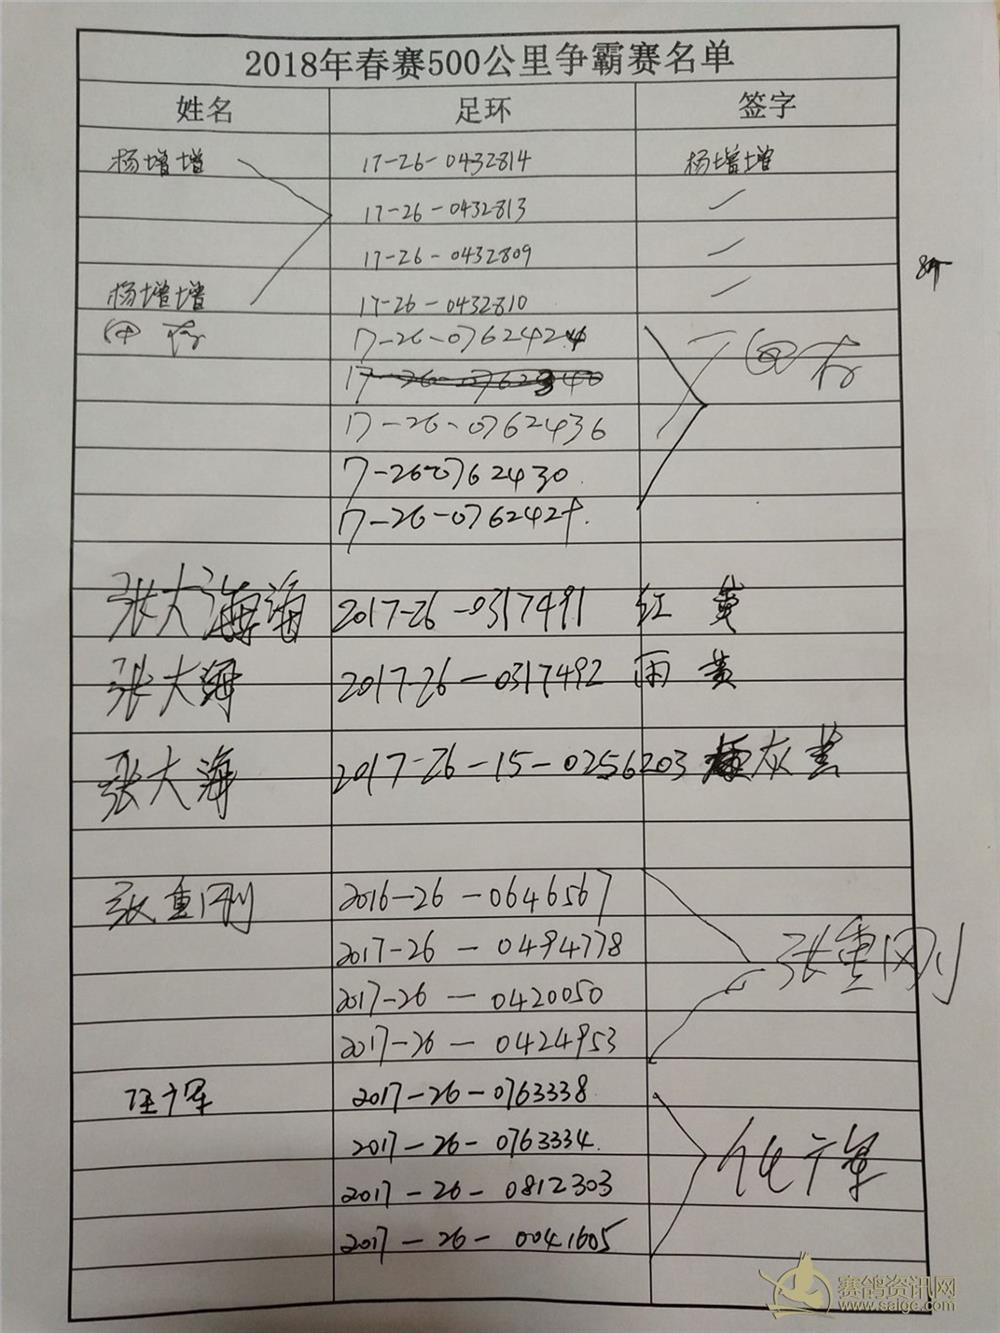 2018年春赛500公里争霸赛名单
姓名 足环 签字
杨增增 17-26-0432814 杨增增
17-26-0432813
17-26-0432809
杨增增 17-26-0432810
17-26-0762424
17-26-0762436
17-26-0762430
17-26-076242
张大海海 2017-26-0317491 红 黄
张大海 2017-26-0317492 雨 黄
张大海 2017-26-15-0256203 灰 黄
张重刚 2016-26-0646567
2017-26-0494778 张重刚
2017-26-0420050
2017-26-0424953
2017-26-0763338
2017-26-0763334
2017-26-0812303
2017-26-0041605
赛鸽资讯网
www.saige.com